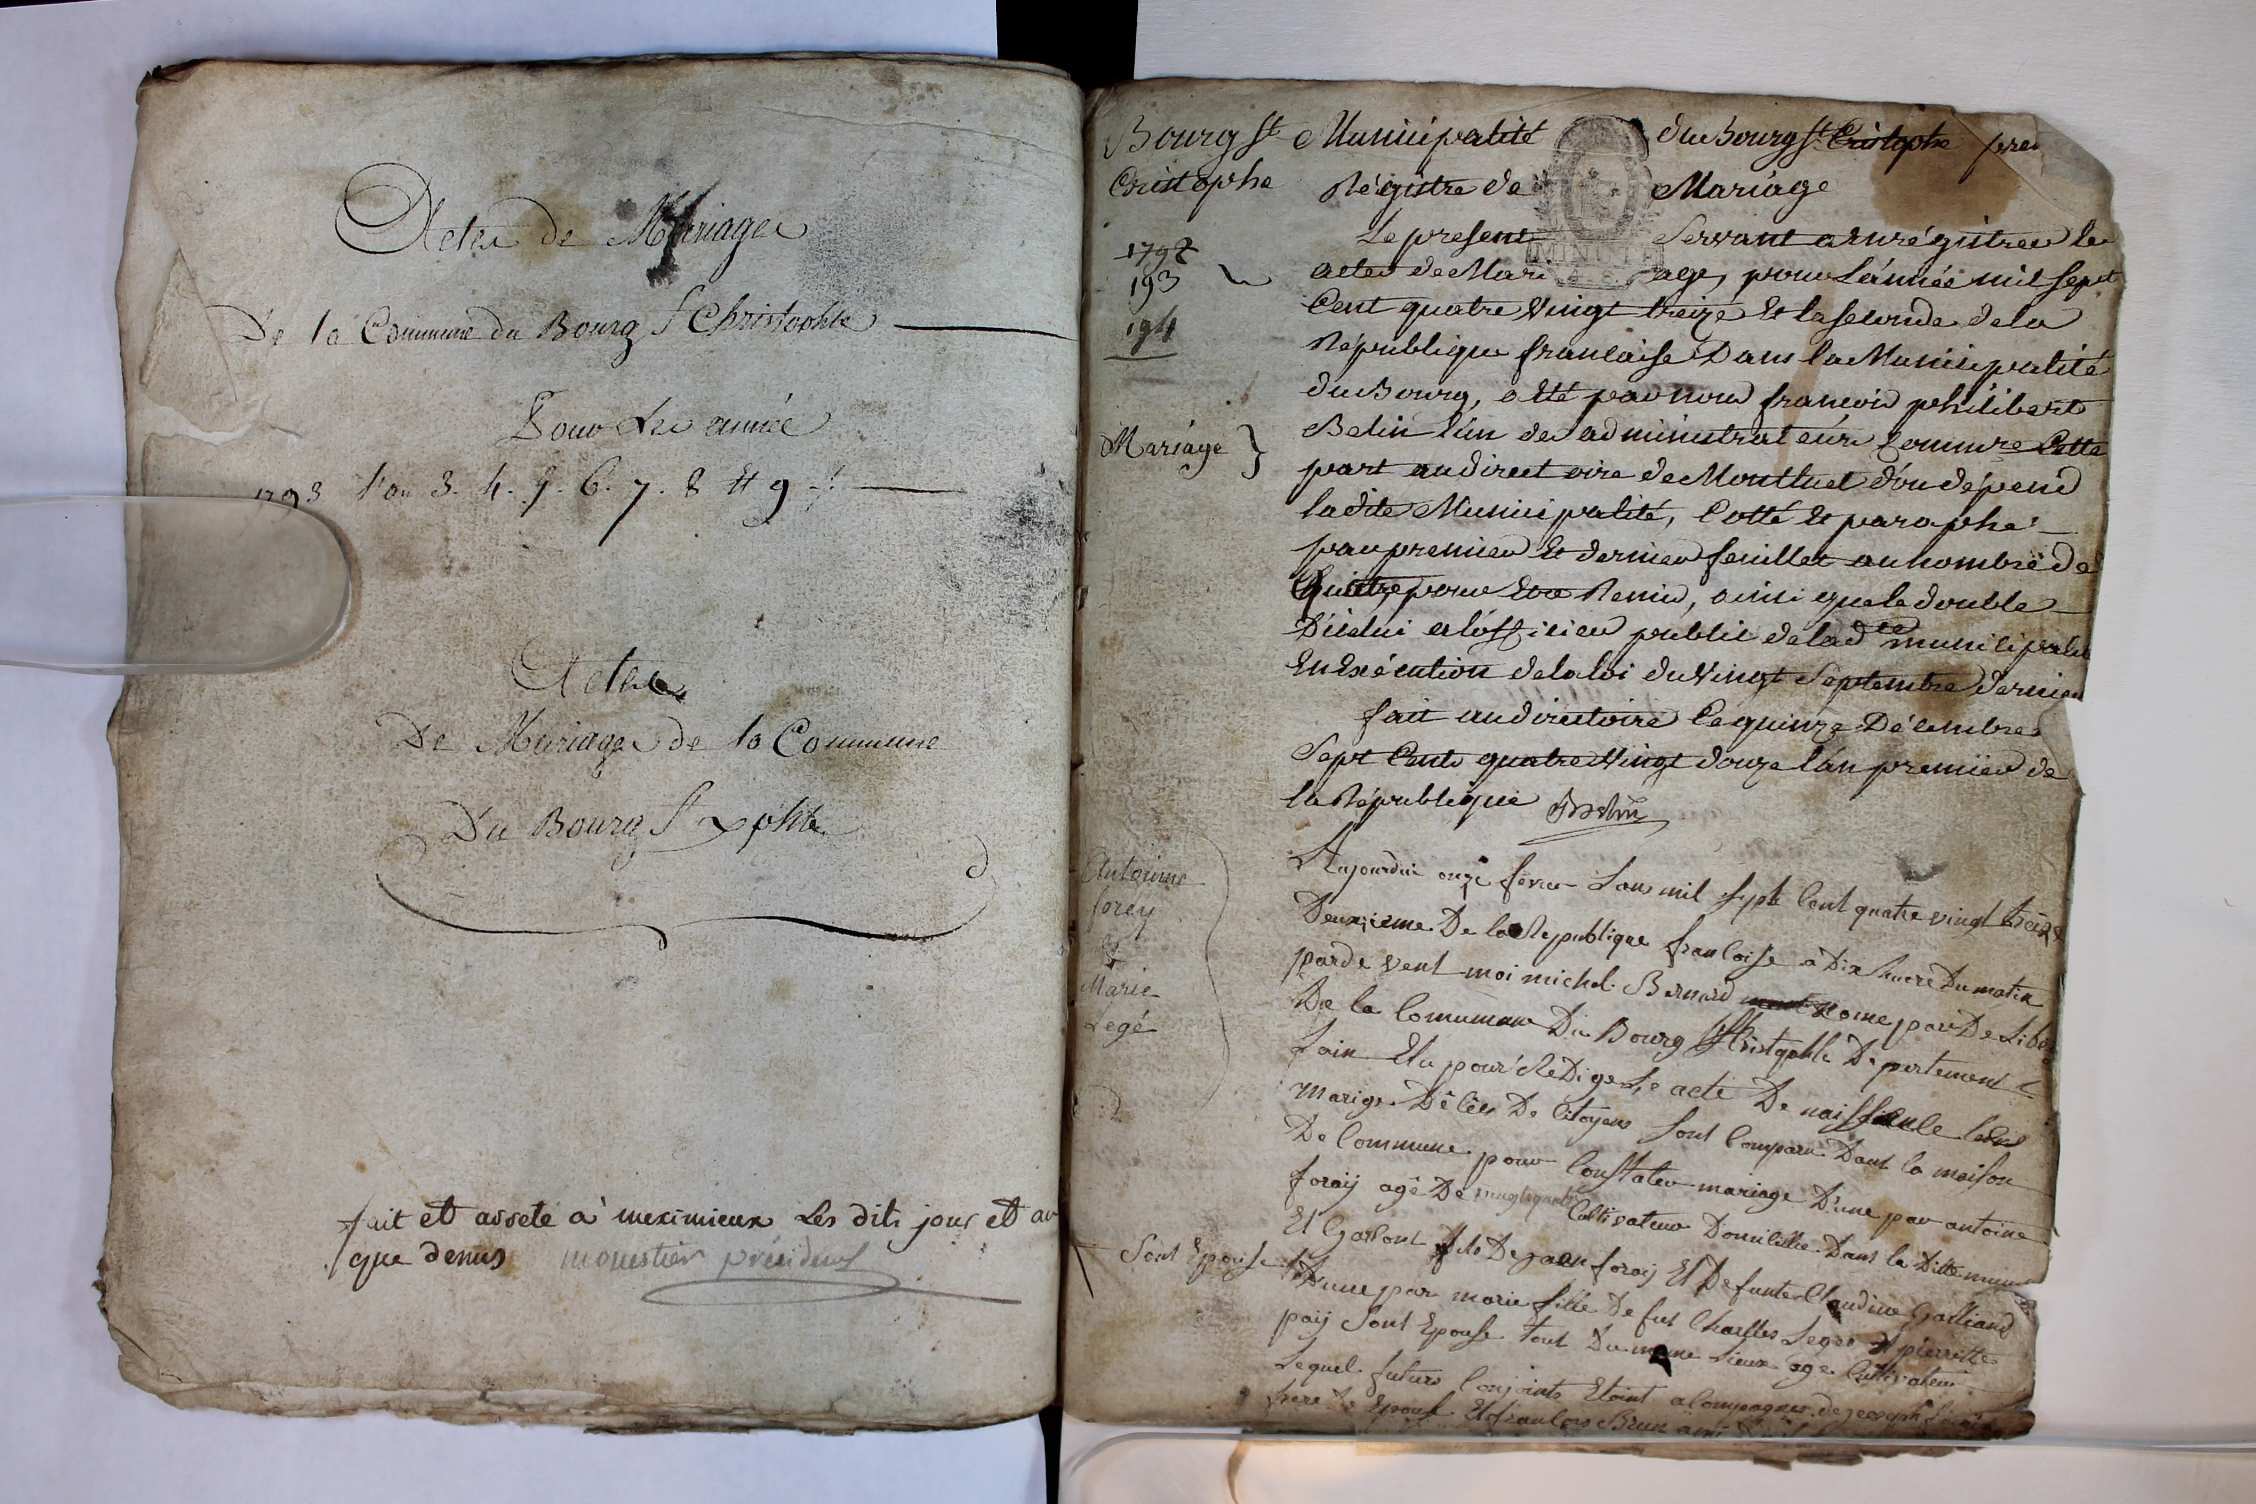 Actes de Mariages
De la Commune du Bourg St Christophle
Pour Les année
1793 l'an 3. 4. 5. 6. 7. 8 et 9
Actes
De Mariages de la Commune
Du Bourg St xphle
fait et areté à meximieux Les dits jour et an
que denus monestier président
Bourg St
Cristophe
1792
193
194
Mariage
Municipalité du Bourg St Cristophe
Régistre de Mariage
Le present Servant a enrégistrer les
actes de Mariage, pour L'année mil sept
Cent quatre Vingt treize Et la seconde de la
République francaise Dans la Municipalité
du Bourg, a été par nous francois philibert
Belin l'un des administrateurs
part au directoire de Montluel d'ou dépend
ladite Municipalité, Cotté Et paraphé
par premier Et dernier feuillet au nombre de
pour Etre Remis, ainsi que le double
D'icelui a l'officier public de lad te municipalité
En Exécution de la loi du Vingt Septembre dernier
fait au directoire Ce quinze Décembre
Sept Cents quatre Vingt douze l'an premier de
la République Belin
Antoinne
forey
&
Marie
Legé
Aujourdui onze fevrier Lans mil sept Cent quatre vingt treize
Deuxzieme De la Republique francoise a Dix heure Du matin
parde vent moi michel Bernard nome par De Libe
De la Commune Du Bourg St Christophle Departement
Lain Elu pour Redigér Le acte De naissance
mariage Décès De Citoyens sont Comparu Dans la maison
De Commune pour Constater mariage D'une par antoine
foray agé De Cultivateur Domicillie Dans la Ditte
Et Garsont fils De jean foray Et De funte Claudine Galliand
Sont Epouse
D'une par marie fille De fut Charlles Leges Et pierrette
pay Sont Epouse tout Du meme Lieux age Cultivateur
Lequel futurs Conjoints Etoint acompagnes de jeoseph
frere Epoux Et francois Brun ami